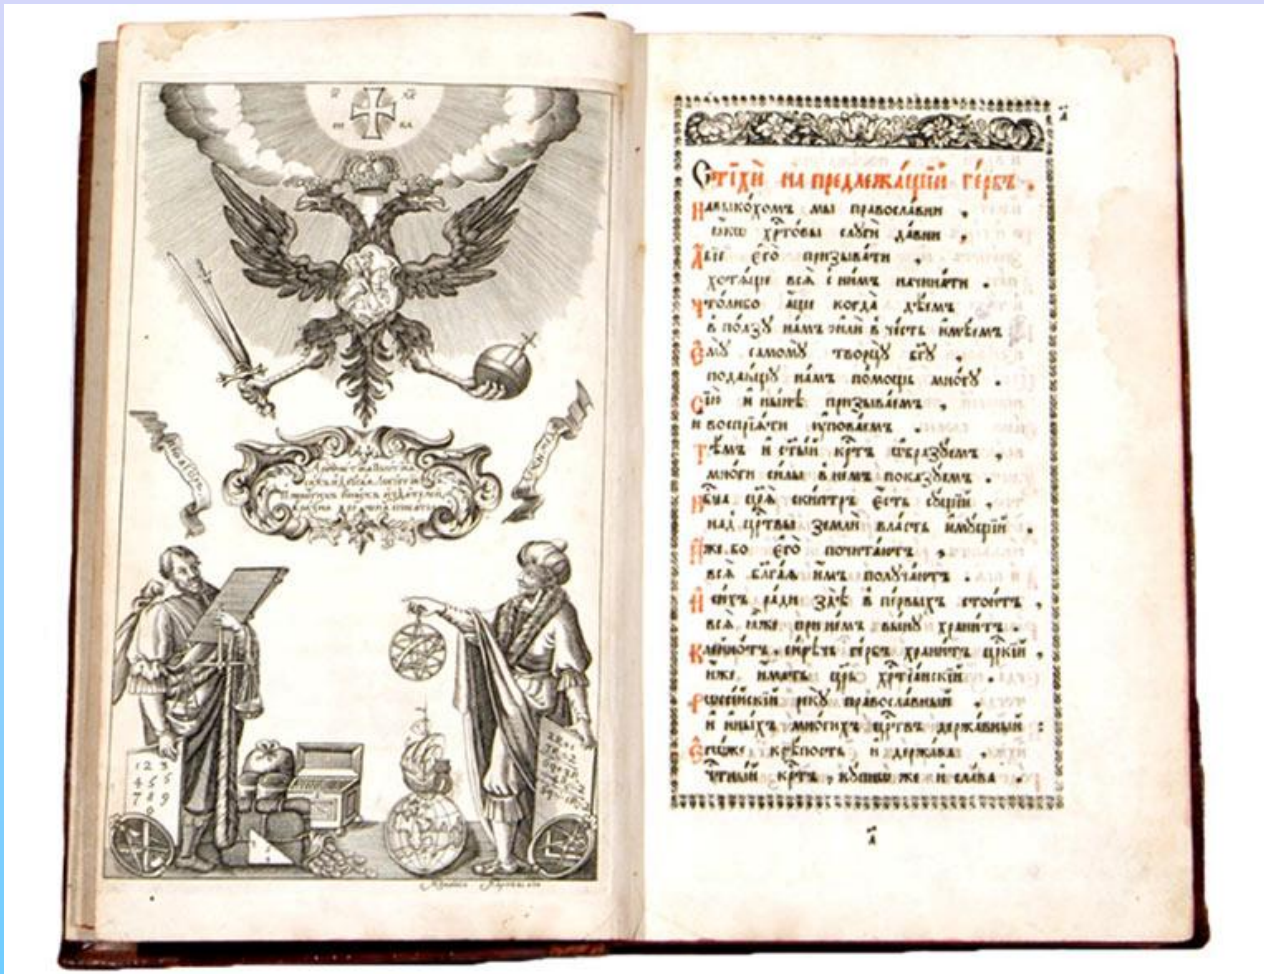 ІС ХС
НИ КА
Арїѳметїка Полїтїка
1 2 3
4 5 6
7 8 9
Стїхѝ на предлежа́щїй ге́рбъ .
Навыко́хомъ мы православнїи ,
ꙗкѡ хрⷭ҇то́вы слꙋги да́вни ,
А҆бїе є҆го̀ призыва́ти ,
хотѧ́ще всѧ̀ с ни́мъ начина́ти .
Что́либо а҆ще когда̀ дѣ́емъ
в по́лзꙋ на́мъ и҆лѝ в че́сть и҆мѣ́емъ
Є҆мꙋ̀ самомꙋ̀ творцꙋ̀ бг҃ꙋ ,
подаю́щꙋ на́мъ по́мощь мно́гꙋ .
Сїѐ и҆ ны́нѣ призыва́емъ ,
и воспрїѧ́ти ᲂу҆пова́емъ .
Тѣ́мъ и҆ ст҃ы́й крⷭ҇тъ ѡ҆бразꙋ́емъ ,
мно́ги си́лы в не́мъ показꙋ́емъ .
цр҃ѧ̀ ски́птръ є҆́сть сꙋ́щїй ,
над црⷭ҇твы землѝ вла́сть и҆мꙋ́щїй .
И҆̀же бо є҆го̀ почита́ютъ ,
всѧ̑ бл҃га́ѧ и҆̀мъ полꙋча́ютъ .
И҆ си́хъ ра́ди здѣ̀ в пе́рвыхъ стои́тъ ,
всѧ̑ и҆̀же при не́мъ вы́нꙋ храни́тъ .
Клейно́тъ , си́рѣчь ге́рбъ храни́тъ црⷭ҇кїй ,
и҆̀же и҆́мать цр҃ь хрⷭ҇тїа́нскїй .
Рѡссі́йскїй рекꙋ̀ правосла́вный
и҆ и҆ны́хъ мно́гихъ црⷭ҇твъ держа́вный :
Є҆гѡ́же крѣ́пость и҆ держа́ва ,
чⷭ҇тны́й крⷭ҇тъ , кꙋ́пнѡ же и҆ сла́ва .